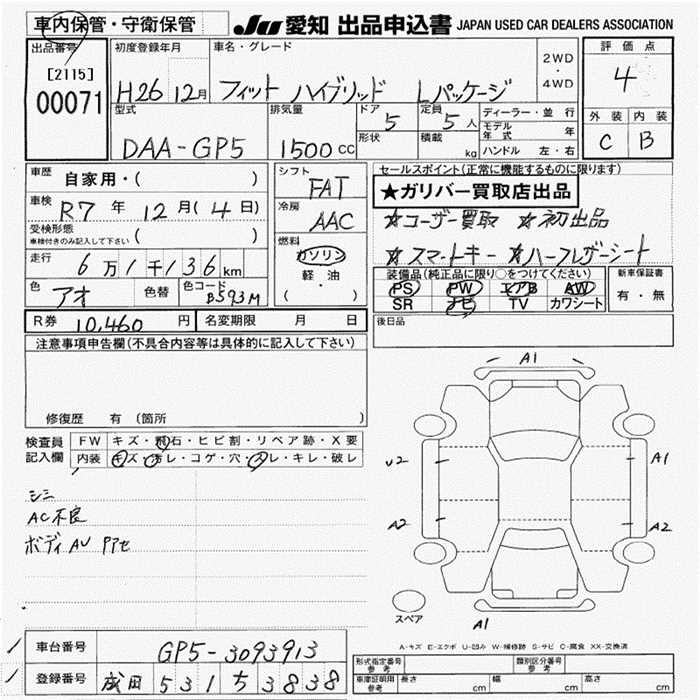 車内保管・守衛保管 JU 愛知 出品申込書 JAPAN USED CAR DEALERS ASSOCIATION
出品番号 初度登録年月 車名・グレード 評価点
[2115]
00071 H26 12月 フィット ハイブリッド Lパッケージ 2WD・4WD 4
型式 排気量 ドア 定員 ディーラー・並行 外装 内装
DAA-GP5 1500 CC 5 5人 モデル年式 年 C B
形状 積載 kg ハンドル 左・右
車歴 自家用・( ) シフト FAT セールスポイント(正常に機能するものに限ります)
★ガリバー買取店出品
車検 R7年 12月(4日) 冷房 AAC ☆ユーザー買取 ☆初出品
受検形態 車検付きのみ記入して下さい ( ) ☆スマートキー ☆ハーフレザーシート
走行 6万1千136km 燃料 ガソリン 軽・油 ( )
装備品(純正品に限り○をつけてください) 新車保証書
PS PW エアB AW 有・無
SR ナビ TV カワシート
色 アオ 色替 色コード B593M
R券 10,460円 名変期限 月 日 後日品
注意事項申告欄(不具合内容等は具体的に記入して下さい)
修復歴 有 (箇所
検査員記入欄 FW キズ・飛石・ヒビ割・リペア跡・X要
内装 キズ・汚レ・コゲ・穴・スレ・キレ・破レ
シミ
AC不良
ボディAU
A1
U2 A1
A2 A2
スペア A1
A-キズ E-エクボ U-凹み W-補修跡 S-サビ C-腐食 XX-交換済
車台番号 GP5-3093913
登録番号 成田 531 ち 3838
形式指定番号 参考 類別区分番号 参考
車庫証明用 参考 長さ cm 幅 cm 高さ cm